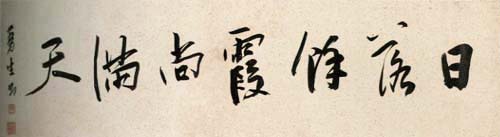 日落餘霞尚滿天